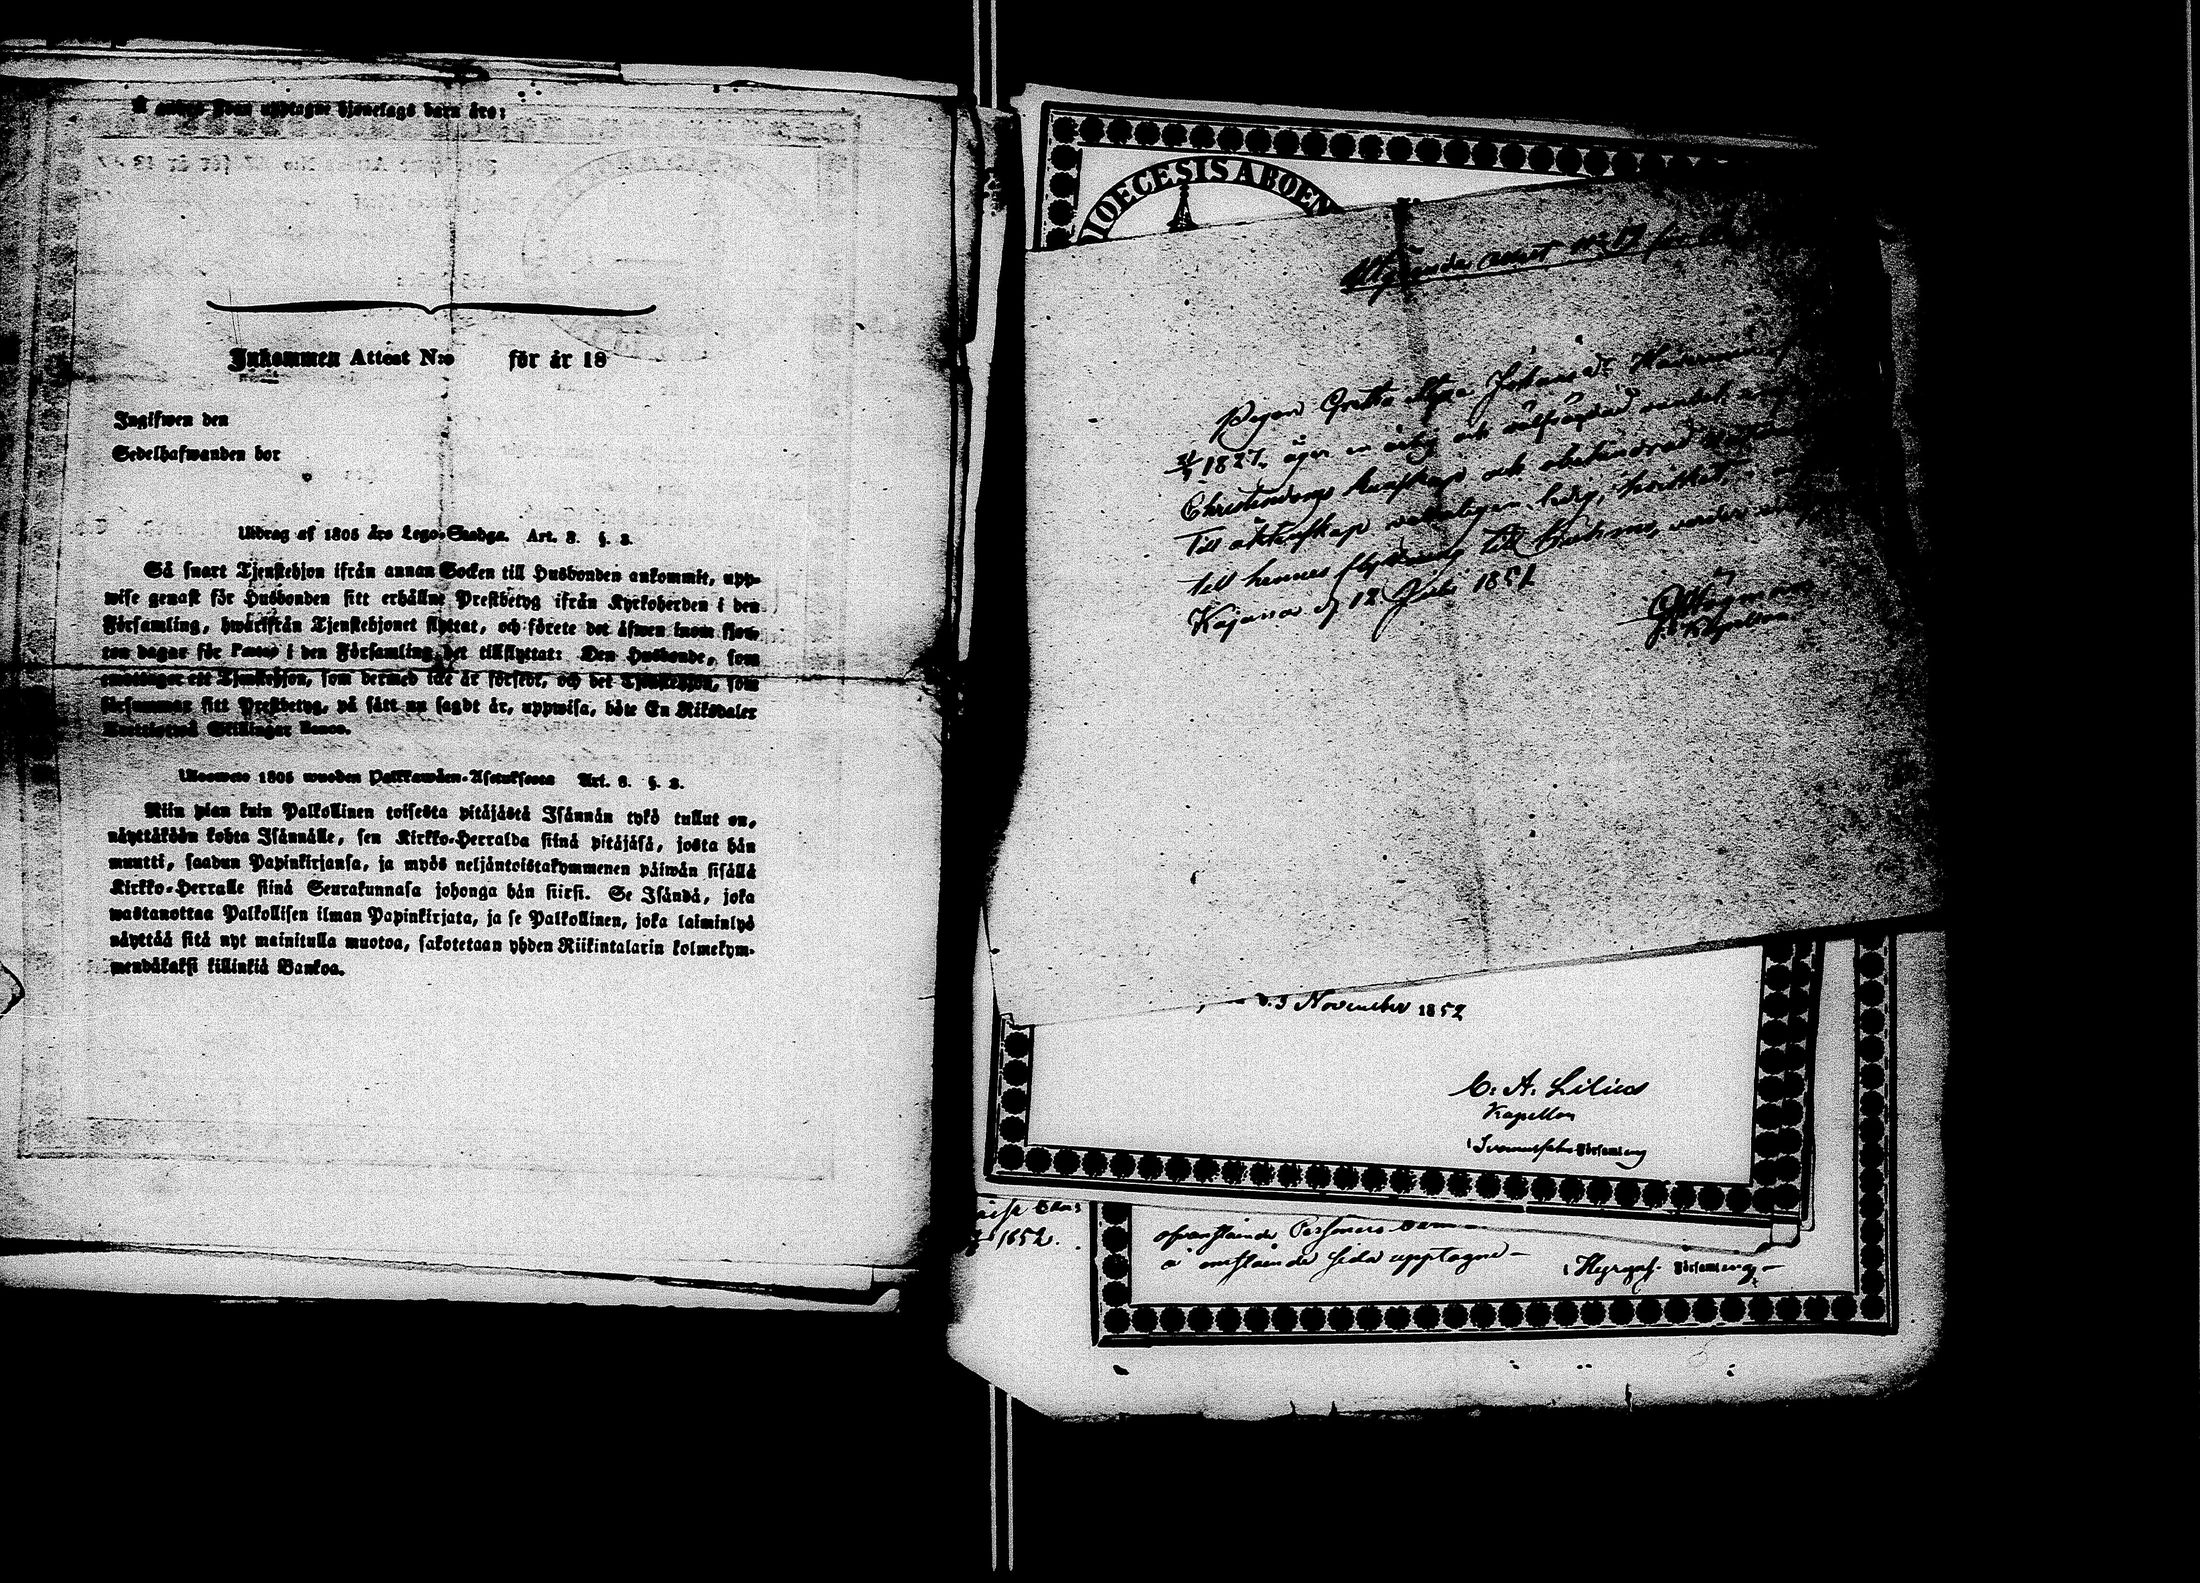 upptagne tjenstags barn äro:
Inkommen Attest N:o för år 18
Ingifwen den
Sedelhafwanden bor
Utdrag af 1805 års Lego-Stadga. Art. 8. §. 2.
Så snart Tjenstehjon ifrån annan Socken till Husbonden ankommit, upp-
wise genast för Husbonden sitt erhållne Prestbetyg ifrån Kyrkoherden i den
Församling, hwarifrån Tjenstehjonet flyttat, och förete det äfwen inom fjor-
ton dagar för Pastor i den Församling det tillflyttat: Den Husbonde, som
emottager ett Tjenstehjon, som dermed icke är försedt, och det Tjenstehjon, som
försummar sitt Prestbetyg, på sätt nu sagdt är, uppwisa, böte En Riksdaler
Trettiotwå Skillingar Banco.
Uloswето 1805 wuoden Palkkawäen-Asetuksesta Art. 8. §. 2.
Niin pian kuin Palkollinen toisesta pitäjästä Isännän tykö tullut on,
näyttäköön kohta Isännälle, sen Kirkko-Herralda siinä pitäjäsä, josta hän
muutti, saadun Papinkirjansa, ja myös neljäntoistakymmenen päiwän sisällä
Kirkko-Herralle siinä Seurakunnasa johonga hän siirsi. Se Isändä, joka
wastanottaa Palkollisen ilman Papinkirjata, ja se Palkollinen, joka laiminlyö
näyttää sitä nyt mainitulla muotoa, sakotetaan yhden Riikintalarin kolmekym-
mendäkaksi killinkiä Bankoa.
DIOECESIS ABOEN
Utgående attest No 19 för
Pigan Greta Stina Johansd:r
1827, äger en ärlig och välfrägdad vandel,
Christendoms kunskap och obehindrad
till äktenskap veterligen ledig, hvilket,
till hennes flyttning till Kuhmo, varder
Kajana d. 12 Juli 1852
Kapellan.
d. 3 November 1852
C. A. Lilius
Kapellan
i Församling
1852.
ofvanstående Personers barn
å omstående sida upptagne –
i Församling –